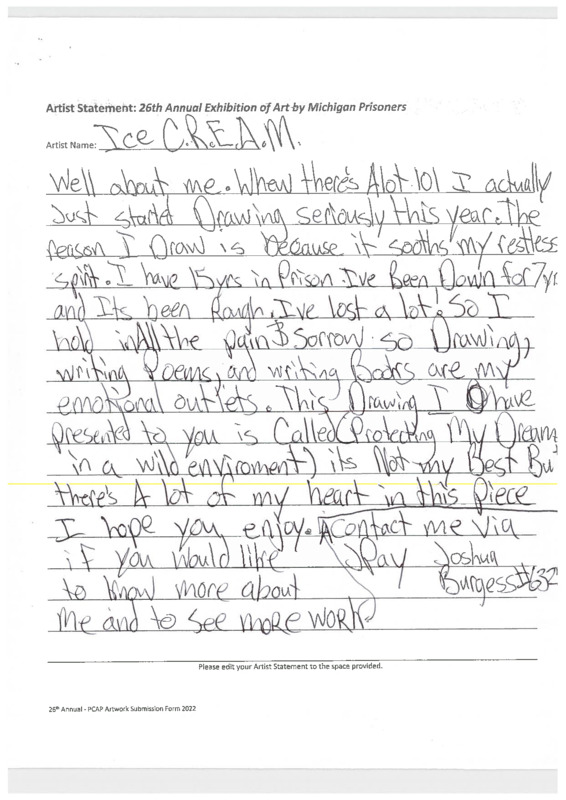 Artist Statement: 26th Annual Exhibition of Art by Michigan Prisoners
Artist Name: Ice C.R.E.A.M.
Well about me. Whew there's Alot. lol I actually
Just started Drawing seriously this year. The
reason I Draw is because it sooths my restless
spirit. I have 15yrs in Prison. I've Been Down for 7yr
and Its been Rough. I've lost a lot! So I
hold in All the pain & Sorrow. so Drawing,
writing Poems, and writing Books are my
emotional outlets. This Drawing I have
presented to you is Called (Protecting My Dream
in a wild enviroment) its Not my Best Bu
there's A lot of my heart in this piece
I hope you enjoy. Contact me via
if you would like JPay Joshua
to know more about Burgess #632
Me and to see more work
Please edit your Artist Statement to the space provided.
26th Annual - PCAP Artwork Submission Form 2022